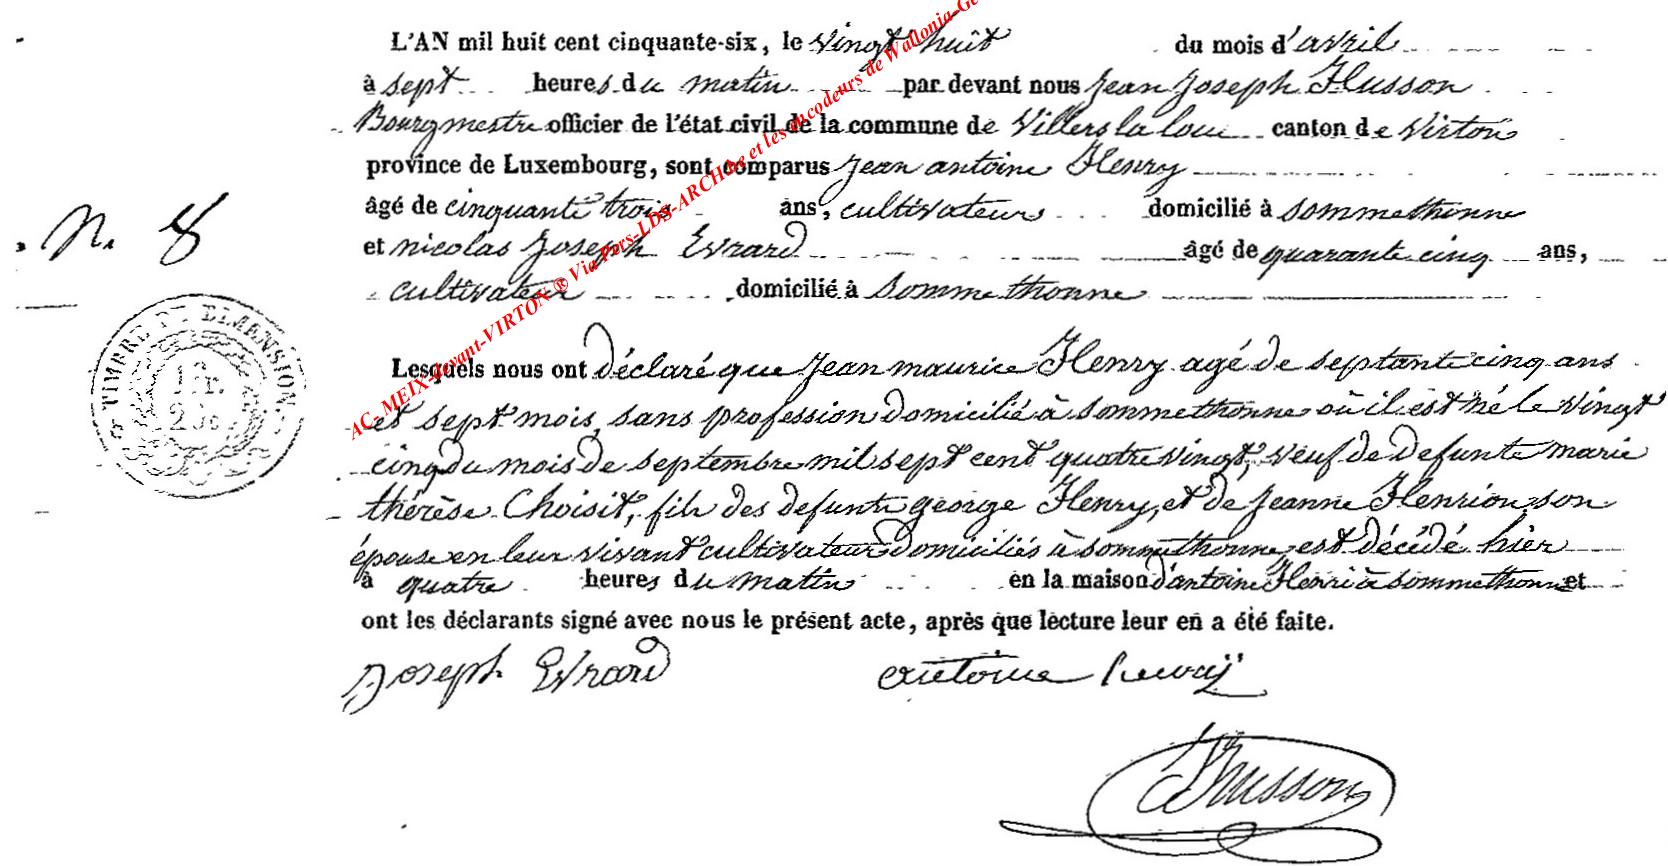 L'AN mil huit cent cinquante-six, le vingt huit du mois d'avril
à sept heures du matin par devant nous Jean Joseph Husson
Bourgmestre officier de l'état civil de la commune de Villers la loue canton de Virton
province de Luxembourg, sont comparus Jean antoine Henry
âgé de cinquante trois ans, cultivateur domicilié à sommethonne
N. 8
et nicolas Joseph Evrard âgé de quarante cinq ans,
cultivateur domicilié à sommethonne
TIMBRE DE DIMENSION
1 fr.
20c.
Lesquels nous ont déclaré que Jean maurice Henry agé de septante cinq ans
et sept mois, sans profession domicilié à sommethonne où il est né le vingt
cinq du mois de septembre mil sept cent quatre vingt, veuf de defunte marie
thérèse Choisit, fils des defunts george Henry, et de Jeanne Henrion son
épouse en leur vivant cultivateurs domiciliés à sommethonne, est décédé hier
à quatre heures du matin en la maison d'antoine Henri à sommethonne et
ont les déclarants signé avec nous le présent acte, après que lecture leur en a été faite.
Joseph Evrard antoine henry
JHusson
AC-MEIX-devant-VIRTON ® Via Pers-LDS-ARCHAe et les encodeurs de Wallonia-Ge